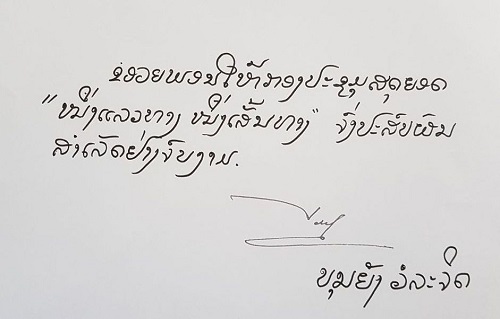 ຂໍອວຍພອນໃຫ້ກອງປະຊຸມສຸດຍອດ
"ໜຶ່ງແລວທາງ ໜຶ່ງເສັ້ນທາງ" ຈົ່ງປະສົບຜົນ
ສຳເລັດຢ່າງຈົບງາມ.
ບຸນຍັງ ວໍລະຈິດ